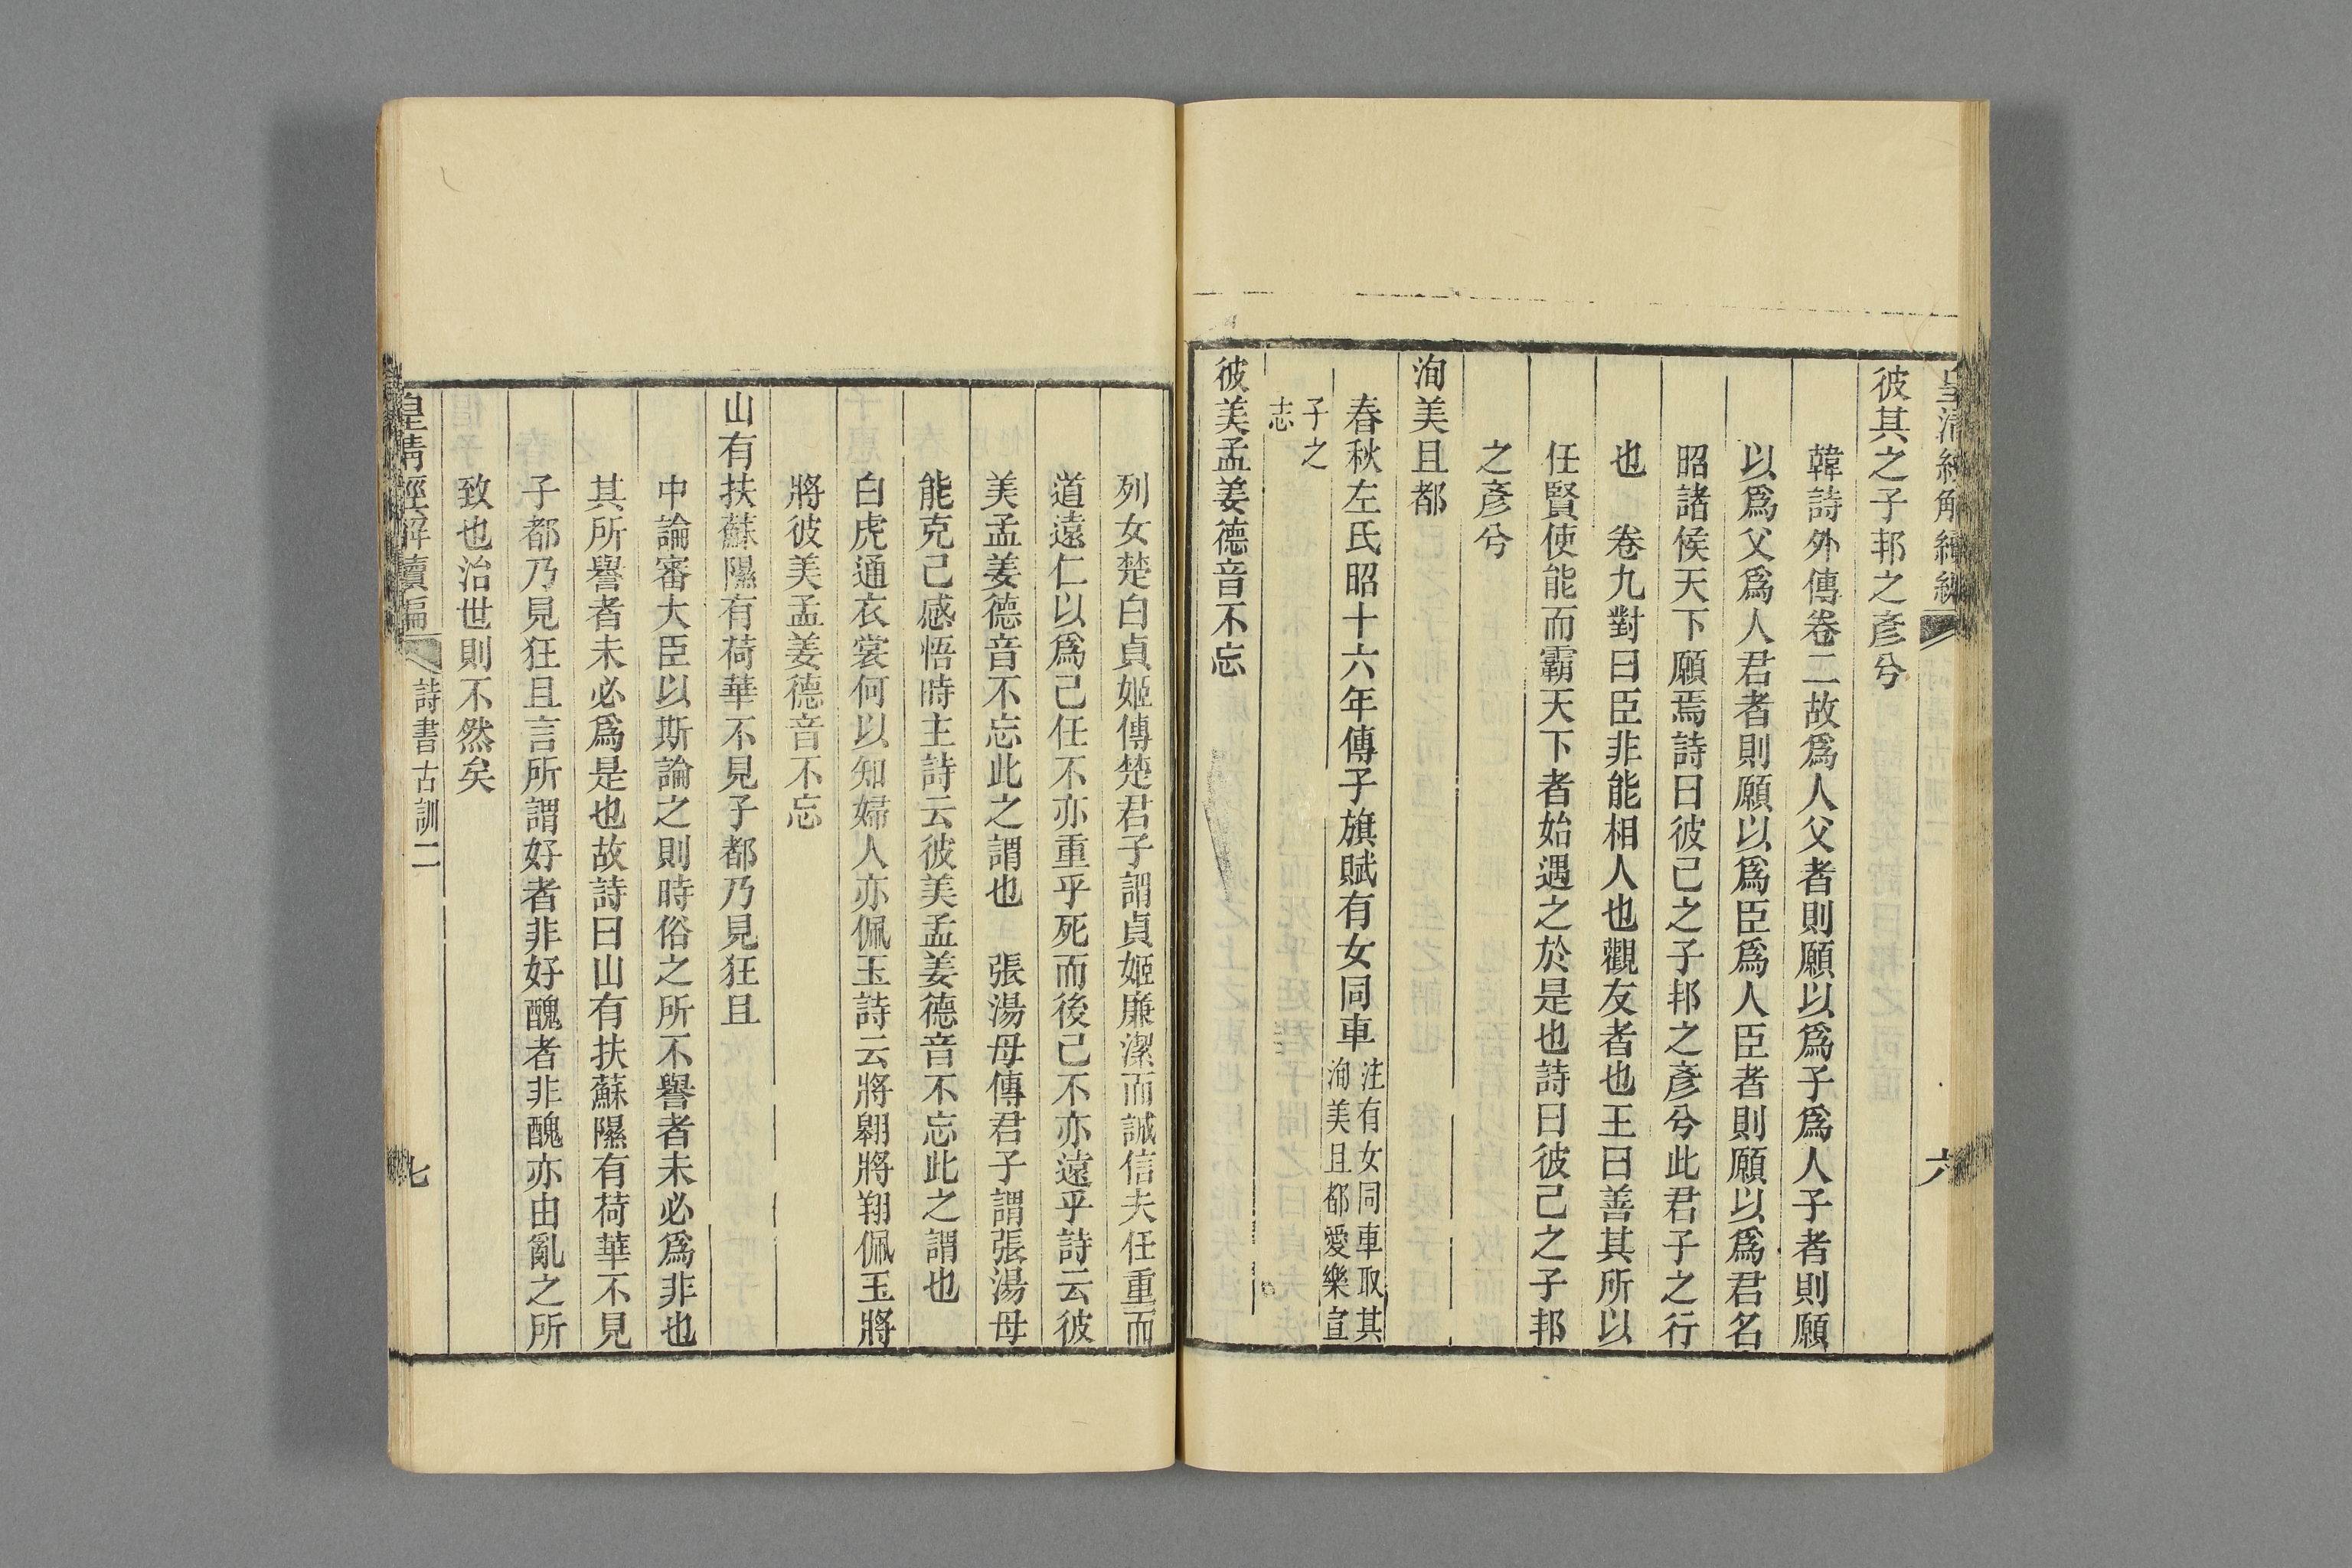 皇清經解續編
六
彼其之子邦之彥兮
韓詩外傳卷二故爲人父者則願以爲子爲人子者則願
以爲父爲人君者則願以爲臣爲人臣者則願以爲君名
昭諸侯天下願焉詩曰彼己之子邦之彥兮此君子之行
也 卷九對曰臣非能相人也觀友者也王曰善其所以
任賢使能而霸天下者始遇之於是也詩曰彼己之子邦
之彥兮
洵美且都
春秋左氏昭十六年傳子旗賦有女同車注有女同車取其
洵美且都愛樂宣
子之
志
彼美孟姜德音不忘
列女楚白貞姬傳楚君子謂貞姬廉潔而誠信夫任重而
道遠仁以爲己任不亦重乎死而後已不亦遠乎詩云彼
美孟姜德音不忘此之謂也 張湯母傳君子謂張湯母
能克己感悟時主詩云彼美孟姜德音不忘此之謂也
白虎通衣裳何以知婦人亦佩玉詩云將翱將翔佩玉將
將彼美孟姜德音不忘
山有扶蘇隰有荷華不見子都乃見狂且
中論審大臣以斯論之則時俗之所不譽者未必爲非也
其所譽者未必爲是也故詩曰山有扶蘇隰有荷華不見
子都乃見狂且言所謂好者非好醜者非醜亦由亂之所
致也治世則不然矣
皇清經解續編
詩書古訓二
七